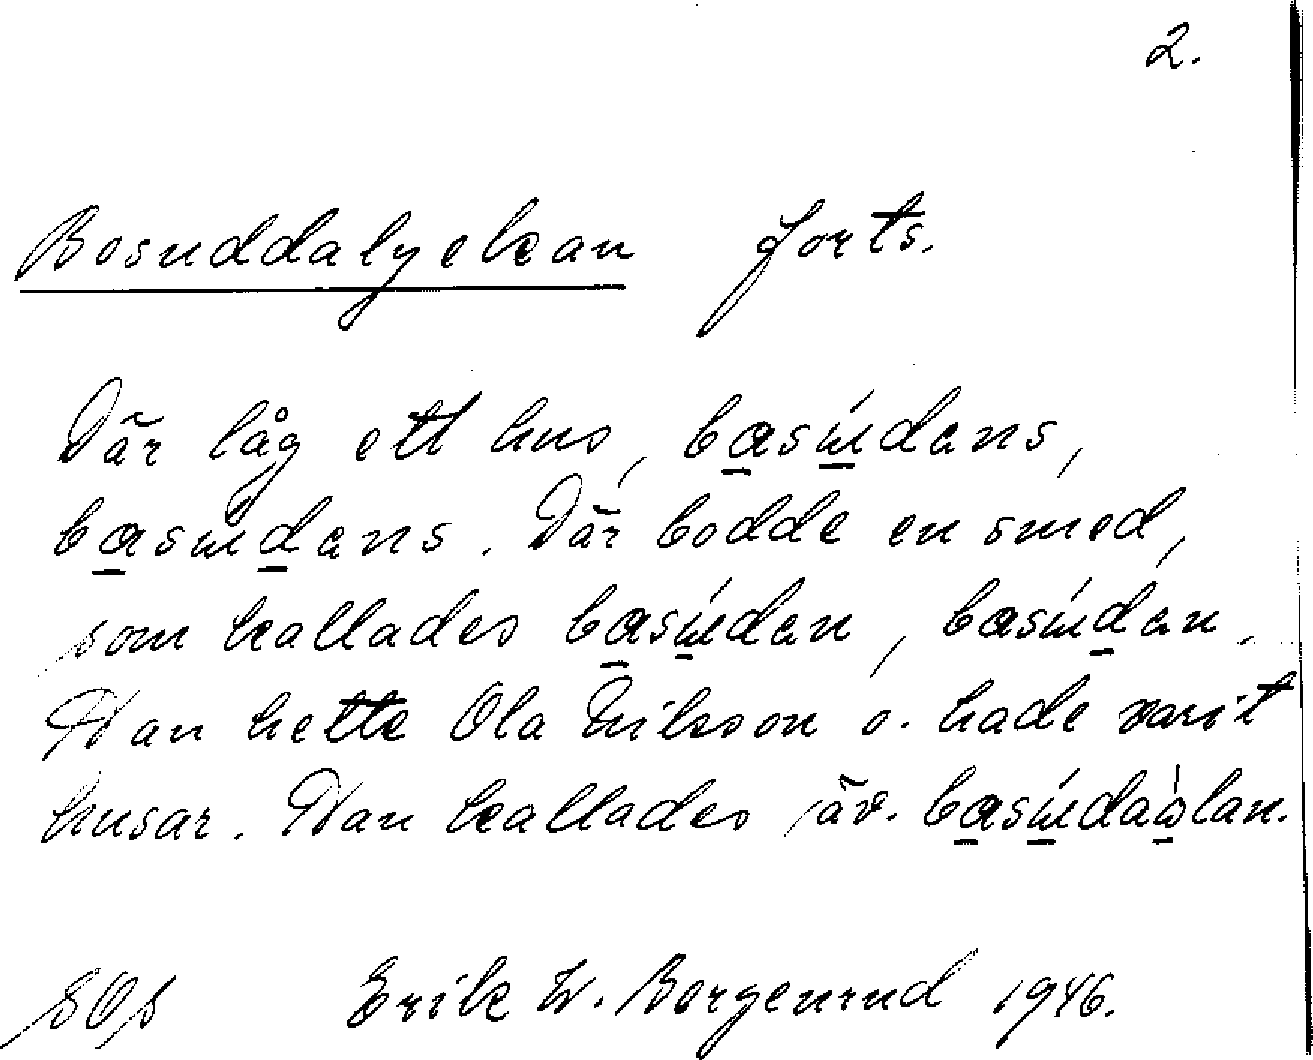 2.
Bosuddalyckan forts.
Där låg ett hus, basúdans,
basudans. Där bodde en smed,
som kallades basúdan, basúdán.
Han hette Ola Nilsson o. hade varit
husar. Han kallades äv. basúdaòlan.
Erik W. Borgenrud 1946.